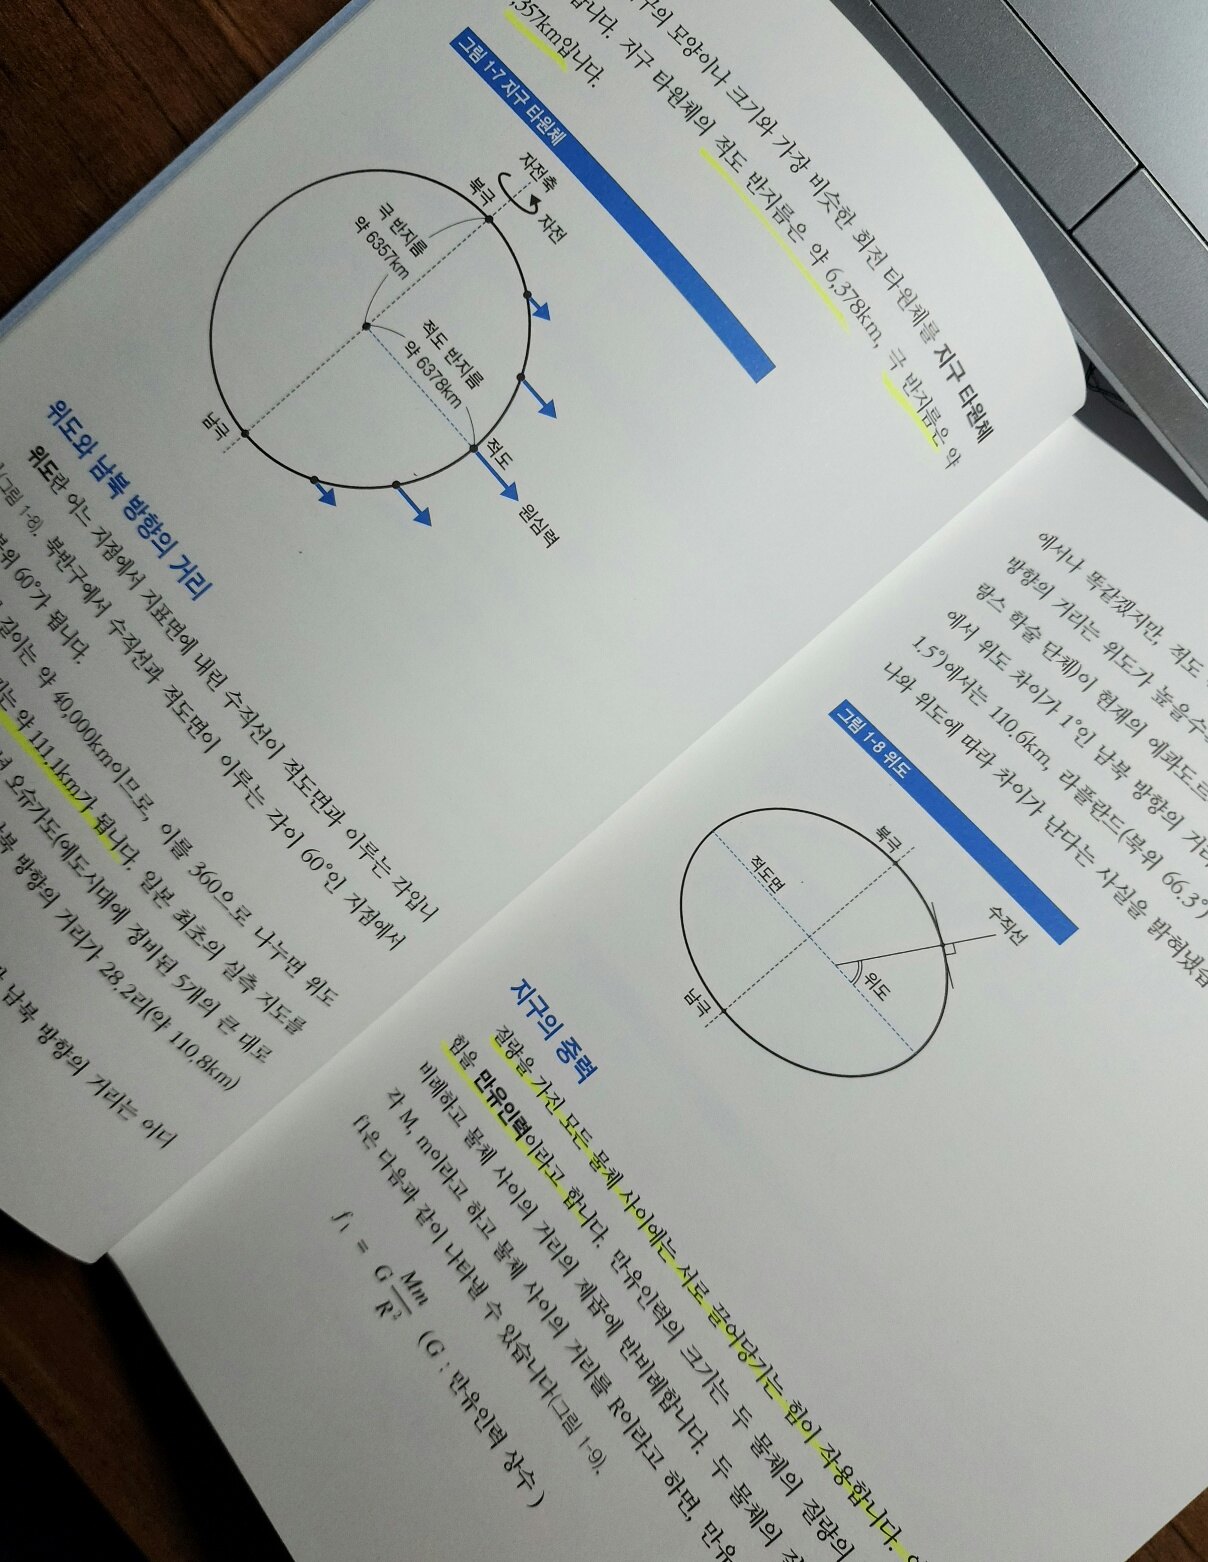 구의 모양이나 크기와 가장 비슷한 회전 타원체를 지구 타원체
니다. 지구 타원체의 적도 반지름은 약 6,378km, 극 반지름은 약
,357km입니다.
그림 1-7 지구 타원체
자전축
북극
자전
극 반지름
약 6357km
적도 반지름
약 6378km
남극
적도
원심력
위도와 남북 방향의 거리
위도란 어느 지점에서 지표면에 내린 수직선이 적도면과 이루는 각입니
(그림 1-8). 북반구에서 수직선과 적도면이 이루는 각이 60°인 지점에서
북위 60°가 됩니다.
길이는 약 40,000km이므로, 이를 360으로 나누면 위도
는 약 111.1km가 됩니다. 일본 최초의 실측 지도를
오슈가도(에도시대에 정비된 5개의 큰 대로
남북 방향의 거리가 28.2리(약 110.8km)
남북 방향의 거리는 어디
에서나 똑같겠지만, 적도
방향의 거리는 위도가 높을수
랑스 학술 단체)이 현재의 에콰도르
에서 위도 차이가 1°인 남북 방향의 거리
1.5°)에서는 110.6km, 라플란드(북위 66.3°)
나와 위도에 따라 차이가 난다는 사실을 밝혀냈습
그림 1-8 위도
북극
적도면
수직선
위도
남극
지구의 중력
질량을 가진 모든 물체 사이에는 서로 끌어당기는 힘이 작용합니다.
힘을 만유인력이라고 합니다. 만유인력의 크기는 두 물체의 질량의
비례하고 물체 사이의 거리의 제곱에 반비례합니다. 두 물체의
각 M, m이라고 하고 물체 사이의 거리를 R이라고 하면, 만유
f₁은 다음과 같이 나타낼 수 있습니다(그림 1-9).
f₁ = G Mm/R² (G : 만유인력 상수)